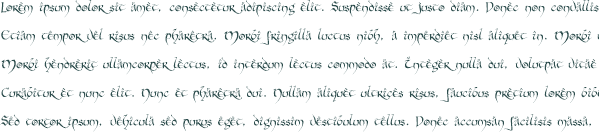 Lorem ipsum dolor sit amet, consectetur adipiscing elit. Suspendisse ut justo diam. Donec non convallis
Etiam tempor vel risus nec pharetra. Morbi fringilla luctus nibh, a imperdiet nisl aliquet in. Morbi
Morbi hendrerit ullamcorper lectus, id interdum lectus commodo at. Integer nulla dui, volutpat vitae
Curabitur et nunc elit. Nunc et pharetra dui. Nullam aliquet ultrices risus, faucibus pretium lorem
Sed tortor ipsum, vehicula sed purus eget, dignissim vestibulum tellus. Donec accumsan facilisis massa.